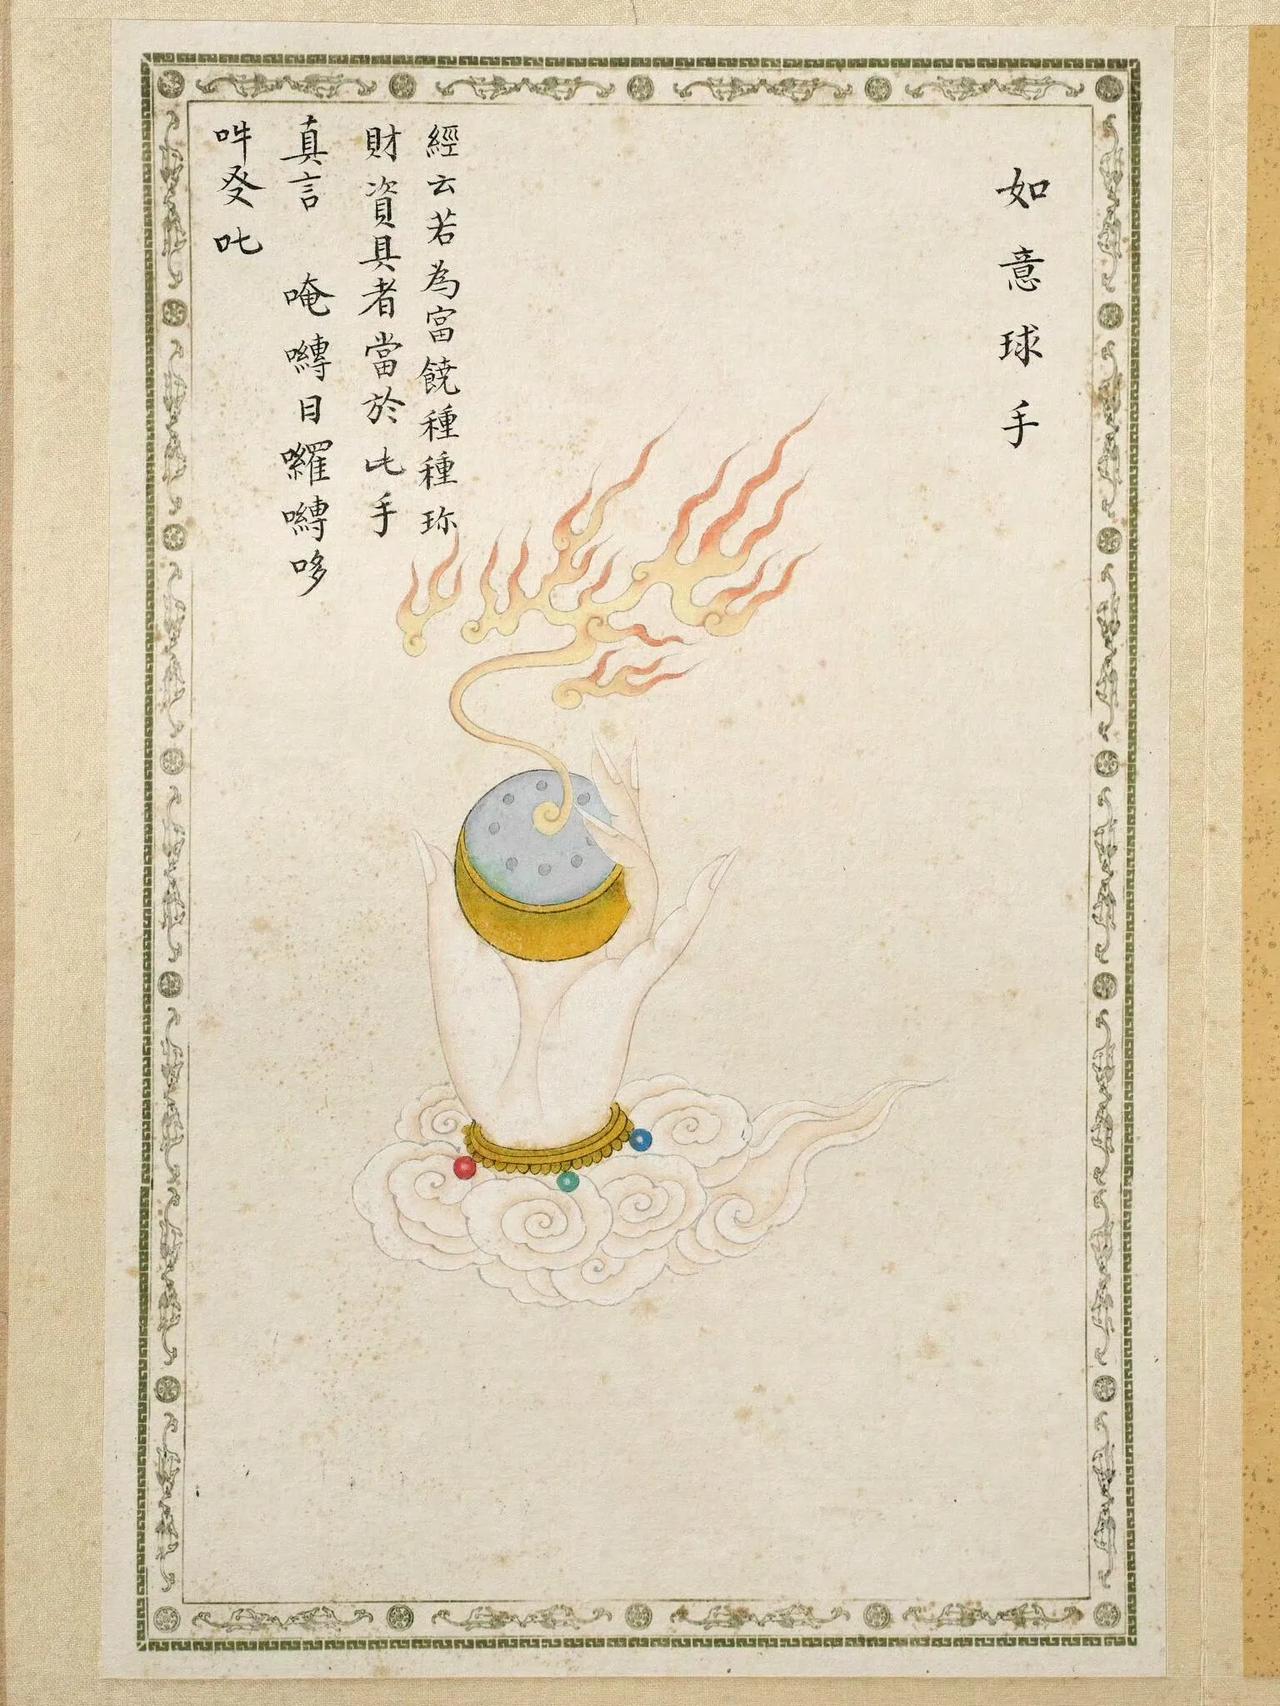 如意球手
經云若為富饒種種珎
財資具者當於此手
真言 唵嚩日囉嚩哆
吽癹吒